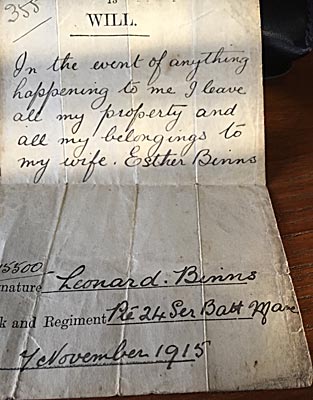 355
WILL.
In the event of anything
happening to me I leave
all my property and
all my belongings to
my wife. Esther Binns
5500
nature Leonard. Binns
k and Regiment Pte 24 Ser Batt Man
7 November 1915